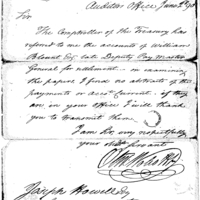 Auditors Office June 2d 90
Sir
The Comptroller of the Treasury has
referred to me the accounts of William
Palfrey Esq. late Deputy Pay Master
General for settlement — on examining
the papers I find no abstracts of the
payments or Accot Current. if they
are in your Office I will thank
you to transmit them.
I am Sir very respectfully
your Obt Servant
Joseph Howell